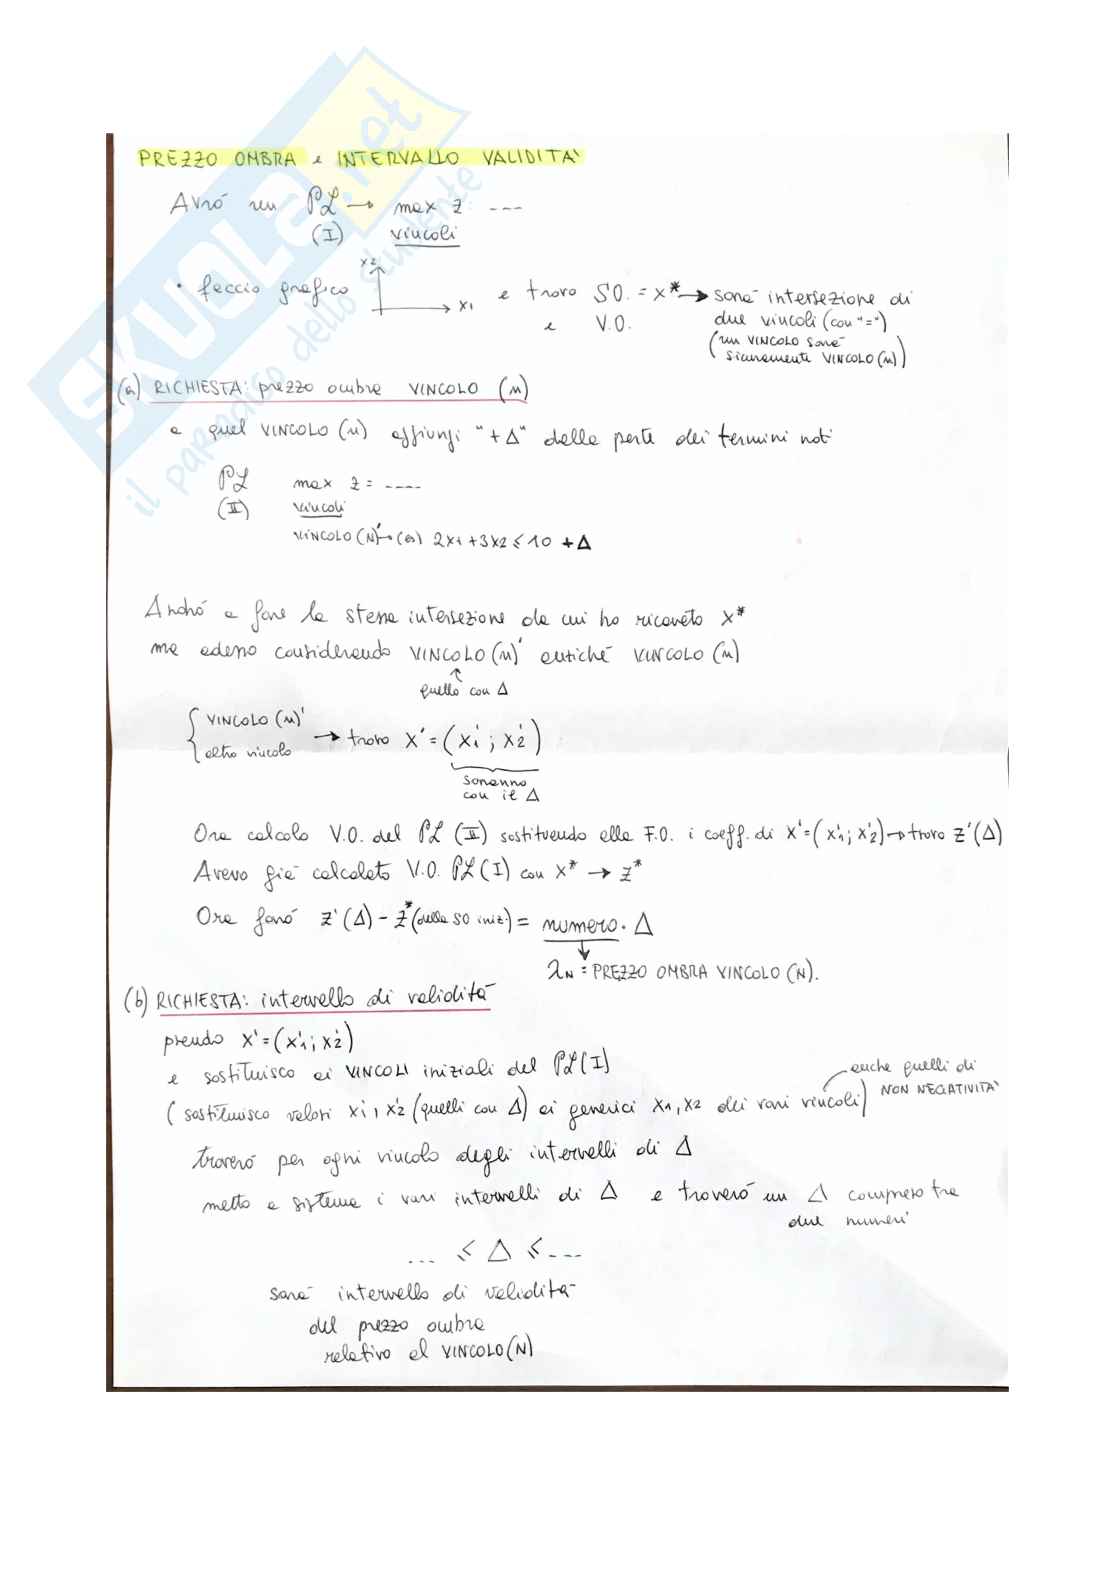 SKUOLA.net
il paradiso dello studente
PREZZO OMBRA e INTERVALLO VALIDITÀ
Avrò un PL → max z ---
(I) vincoli
• faccio grafico x2 x1 e trovo SO. = x* → sarà intersezione di
e V.O. due vincoli (con "=")
(un VINCOLO sarà
sicuramente VINCOLO (N))
(a) RICHIESTA: prezzo ombra VINCOLO (N)
a quel VINCOLO (N) aggiungi "+ Δ" dalla parte dei termini noti
PL max z = ----
(II) vincoli
VINCOLO (N)' → (es) 2x1 + 3x2 ≤ 10 + Δ
Andrò a fare la stessa intersezione da cui ho ricavato x*
ma adesso considerando VINCOLO (N)' anziché VINCOLO (N)
quello con Δ
{ VINCOLO (N)'
altro vincolo → trovo x' = (x1' ; x2')
saranno
con il Δ
Ora calcolo V.O. del PL (II) sostituendo alla F.O. i coeff. di x' = (x'1 ; x'2) → trovo z'(Δ)
Avevo già calcolato V.O. PL (I) con x* → z*
Ora farò z'(Δ) - z* (della SO iniz.) = numero · Δ
λN = PREZZO OMBRA VINCOLO (N).
(b) RICHIESTA: intervallo di validità
prendo x' = (x'1 ; x2')
e sostituisco ai VINCOLI iniziali del PL (I)
anche quelli di
NON NEGATIVITÀ
(sostituisco valori x1', x2' (quelli con Δ) ai generici x1, x2 dei vari vincoli)
troverò per ogni vincolo degli intervalli di Δ
metto a sistema i vari intervalli di Δ e troverò un Δ compreso tra
due numeri
--- ≤ Δ ≤ ---
sarà intervallo di validità
del prezzo ombra
relativo al VINCOLO (N)